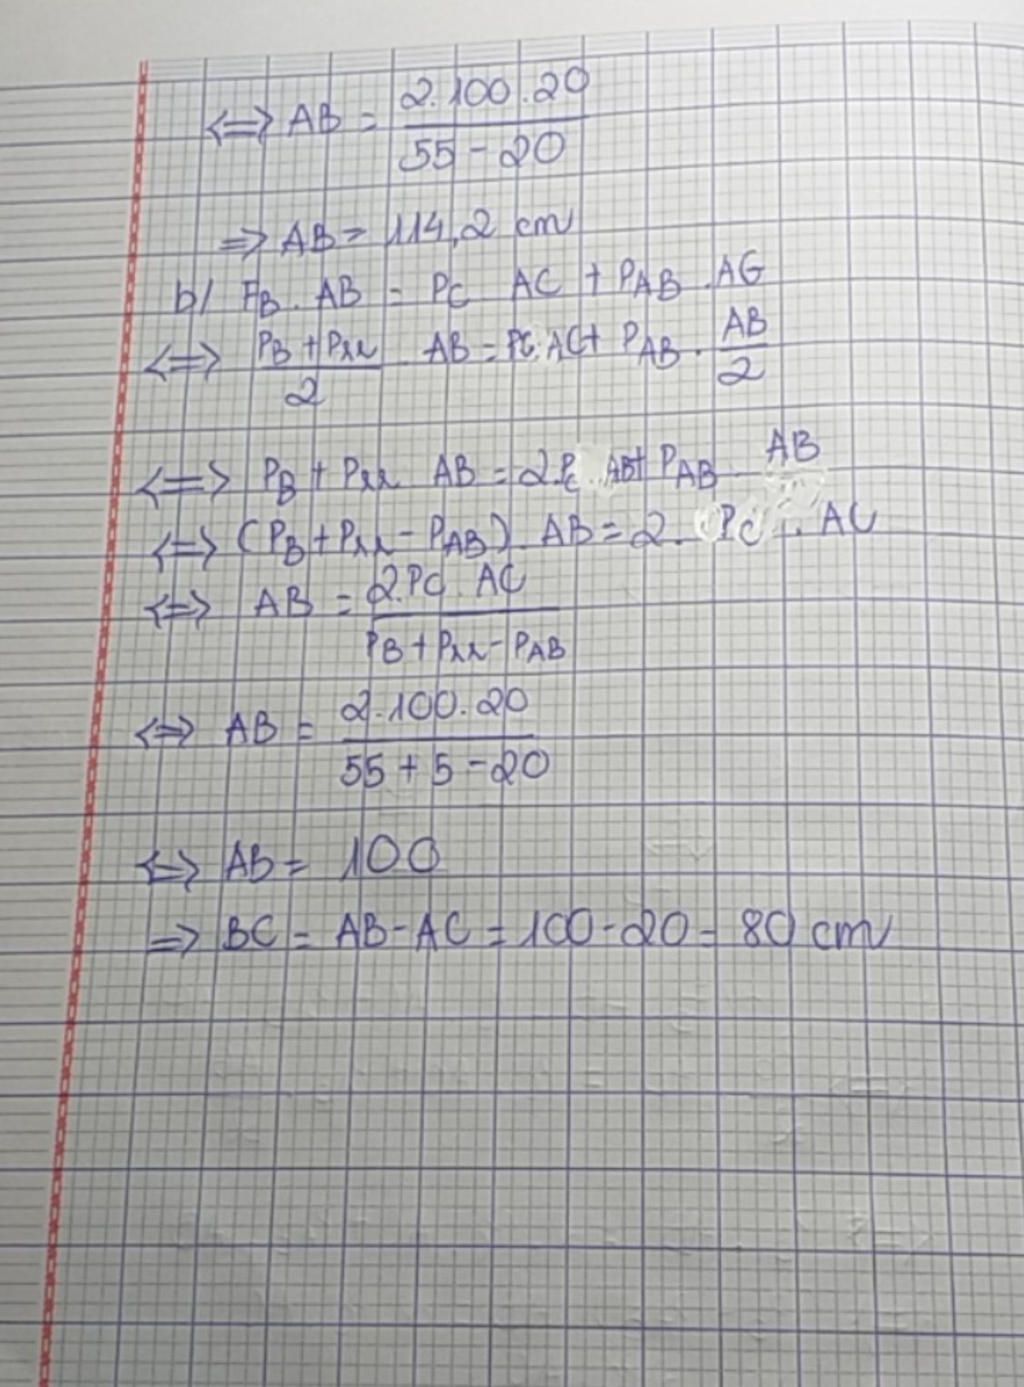 ⇔ AB = 2.100.20 / 55 - 20
⇒ AB = 114,2 cm
b/ FB . AB = PC AC + PAB . AG
⇔ PB + Prr / 2 AB = PC. AC + PAB . AB / 2
⇔ PB + Prr AB = 2PC . AB + PAB AB
⇔ (PB + Prr - PAB) . AB = 2. PC . AC
⇔ AB = 2.PC. AC / PB + Prr - PAB
⇔ AB = 2.100.20 / 55 + 5 - 20
⇔ AB = 100
⇒ BC = AB - AC = 100 - 20 = 80 cm